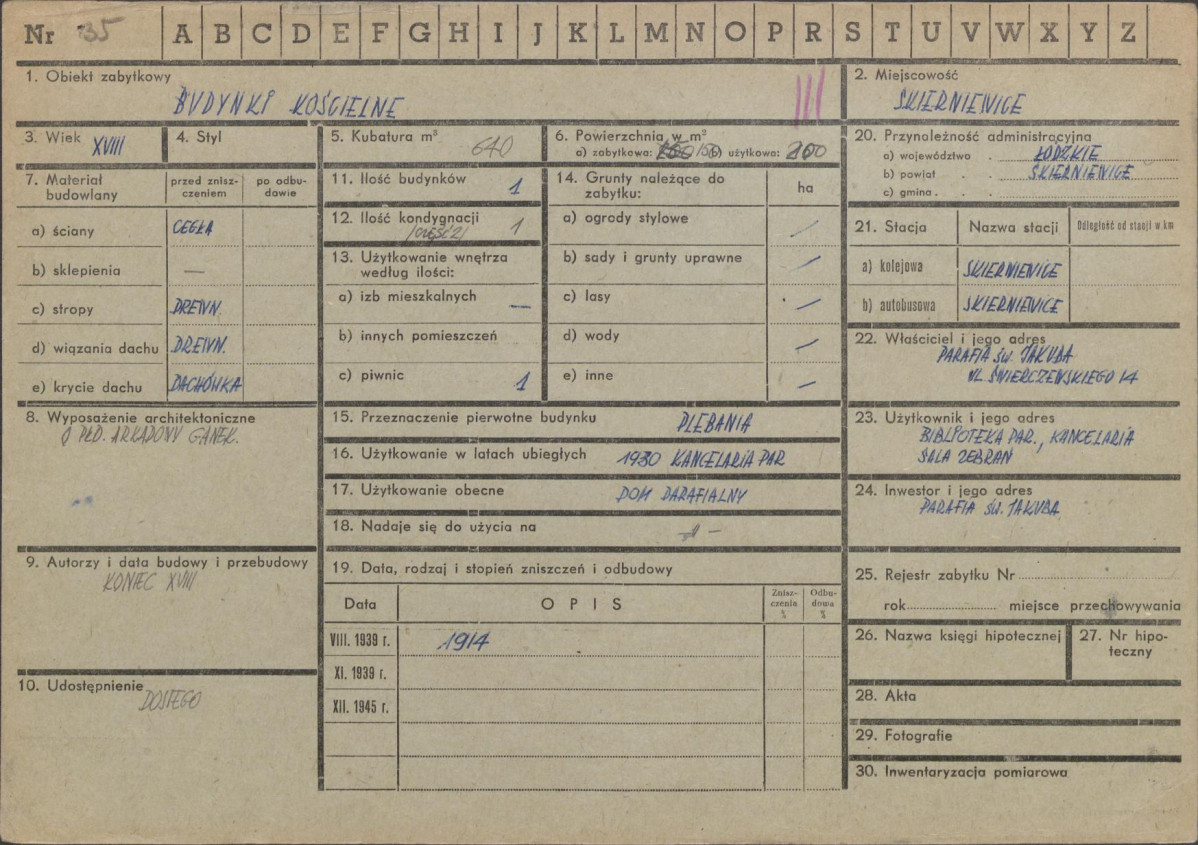 Nr 35 A B C D E F G H I J K L M N O P R S T U V W X Y Z
1. Obiekt zabytkowy
BUDYNKI KOŚCIELNE
2. Miejscowość
SKIERNIEWICE
3. Wiek XVIII
4. Styl
5. Kubatura m³ 640
6. Powierzchnia w m²
a) zabytkowa: 150 b) użytkowa: 200
7. Materiał budowlany
przed znisz-
czeniem
po odbu-
dowie
a) ściany CEGŁA
b) sklepienia —
c) stropy DREWN.
d) wiązania dachu DREWN.
e) krycie dachu DACHÓWKA
8. Wyposażenie architektoniczne
PŁD. ARKADOWY GANEK.
9. Autorzy i data budowy i przebudowy
KONIEC XVIII
10. Udostępnienie
11. Ilość budynków 1
12. Ilość kondygnacji 1
/CZĘŚĆ 2/
13. Użytkowanie wnętrza
według ilości:
a) izb mieszkalnych —
b) innych pomieszczeń
c) piwnic 1
14. Grunty należące do
zabytku:
ha
a) ogrody stylowe —
b) sady i grunty uprawne —
c) lasy —
d) wody —
e) inne —
15. Przeznaczenie pierwotne budynku PLEBANIA
16. Użytkowanie w latach ubiegłych 1930 KANCELARIA PAR
17. Użytkowanie obecne DOM PARAFIALNY
18. Nadaje się do użycia na –
19. Data, rodzaj i stopień zniszczeń i odbudowy
Data
OPIS
Znisz-
czenia
%
Odbu-
dowa
%
VIII. 1939 r. 1914
XI. 1939 r.
XII. 1945 r.
20. Przynależność administracyjna
a) województwo . ŁÓDZKIE
b) powiat . . SKIERNIEWICE
c) gmina . .
21. Stacja
Nazwa stacji
Odległość od stacji w km
a) kolejowa SKIERNIEWICE
b) autobusowa SKIERNIEWICE
22. Właściciel i jego adres
PARAFIA ŚW. JAKUBA
UL. ŚWIERCZEWSKIEGO 14
23. Użytkownik i jego adres
BIBLIOTEKA PAR., KANCELARIA
SALA ZEBRAŃ
24. Inwestor i jego adres
PARAFIA ŚW. JAKUBA
25. Rejestr zabytku Nr
rok miejsce przechowywania
26. Nazwa księgi hipotecznej
27. Nr hipo-
teczny
28. Akta
29. Fotografie
30. Inwentaryzacja pomiarowa